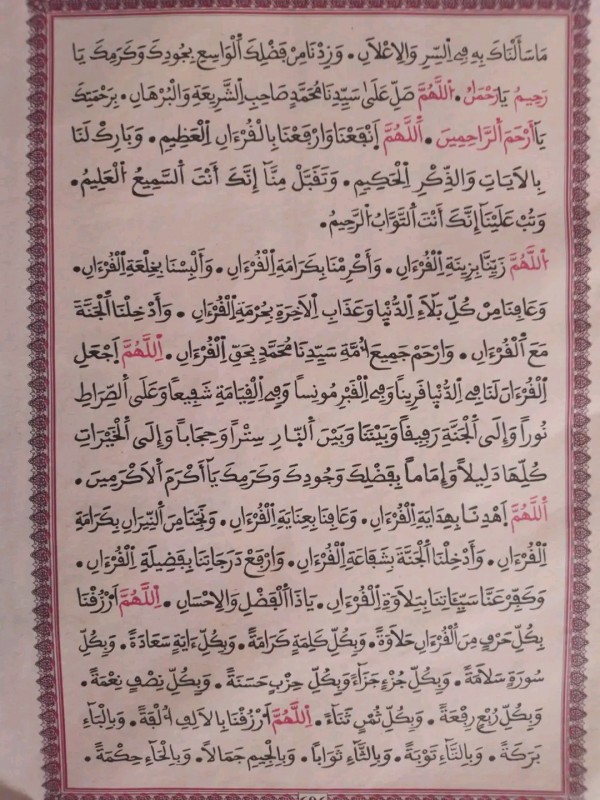 مَا سَأَلْنَاكَ بِهِ فِي اِلسِّرِ وَالِاعْلَانِ . وَزِدْنَا مِنْ فَضْلِكَ اَلْوَاسِعِ بِجُودِكَ وَكَرَمِكَ يَا
رَحِيمُ يَارَحْمَانُ . اَللَّهُمَّ صَلِّ عَلَىٰ سَيِّدِنَا مُحَمَّدٍ صَاحِبِ اِلشَّرِيعَةِ وَالْبُرْهَانِ . بِرَحْمَتِكَ
يَا أَرْحَمَ اَلرَّاحِمِينَ . اَللَّهُمَّ اَنْفَعْنَا وَارْفَعْنَا بِالْقُرْءَانِ اِلْعَظِيمِ . وَبَارِكْ لَنَا
بِالآيَاتِ وَالذِّكْرِ اِلْحَكِيمِ . وَتَقَبَّلْ مِنَّآ إِنَّكَ أَنْتَ اَلسَّمِيعُ اُلْعَلِيمُ .
وَتُبْ عَلَيْنَآ إِنَّكَ أَنْتَ اَلتَّوَّابُ اُلرَّحِيمُ .
اَللَّهُمَّ زَيِّنَّا بِزِينَةِ اِلْقُرْءَانِ . وَأَكْرِمْنَا بِكَرَامَةِ اِلْقُرْءَانِ . وَأَلْبِسْنَا بِخِلْعَةِ اِلْقُرْءَانِ .
وَعَافِنَا مِنْ كُلِّ بَلَآءِ اِلدُّنْيَا وَعَذَابِ اِلَاخِرَةِ بِحُرْمَةِ اِلْقُرْءَانِ . وَأَدْخِلْنَا اَلْجَنَّةَ
مَعَ اَلْقُرْءَانِ . وَارْحَمْ جَمِيعَ أُمَّةِ سَيِّدِنَا مُحَمَّدٍ بِحَقِ اِلْقُرْءَانِ . اِللَّهُمَّ اَجْعَلِ
اِلْقُرْءَانَ لَنَا فِي اِلدُّنْيَا قَرِيناً وَفِي اِلْقَبْرِ مُونِساً وَفِي اِلْقِيَامَةِ شَفِيعاً وَعَلَى اَلصِّرَاطِ
نُوراً وَإِلَى اَلْجَنَّةِ رَفِيقاً وَبَيْنَنَا وَبَيْنَ اَلنَّارِ سِتْراً وَحِجَاباً وَإِلَى اَلْخَيْرَاتِ
كُلِّهَا دَلِيلاً وَإِمَاماً بِفَضْلِكَ وَجُودِكَ وَكَرَمِكَ يَآ أَكْرَمَ اَلَاكْرَمِينَ .
اَللَّهُمَّ اَهْدِنَا بِهِدَايَةِ اِلْقُرْءَانِ . وَعَافِنَا بِعِنَايَةِ اِلْقُرْءَانِ . وَنَجِّنَا مِنَ اَلنِّيرَانِ بِكَرَامَةِ
اِلْقُرْءَانِ . وَأَدْخِلْنَا اَلْجَنَّةَ بِشَفَاعَةِ اِلْقُرْءَانِ . وَارْفَعْ دَرَجَاتِنَا بِفَضِيلَةِ اِلْقُرْءَانِ .
وَكَفِّرْ عَنَّا سَيِّئَاتِنَا بِتِلَاوَةِ اِلْقُرْءَانِ . يَاذَا اَلْفَضْلِ وَالِاحْسَانِ . اِللَّهُمَّ اَرْزُقْنَا
بِكُلِّ حَرْفٍ مِنَ اَلْقُرْءَانِ حَلَاوَةً . وَبِكُلِّ كَلِمَةٍ كَرَامَةً . وَبِكُلِّ ءَايَةٍ سَعَادَةً . وَبِكُلِّ
سُورَةٍ سَلَامَةً . وَبِكُلِّ جُزْءٍ جَزَآءً وَبِكُلِّ حِزْبٍ حَسَنَةً . وَبِكُلِّ نِصْفٍ نِعْمَةً .
وَبِكُلِّ رُبْعٍ رِفْعَةً . وَبِكُلِّ ثُمْنٍ ثَنَآءً . اِللَّهُمَّ اَرْزُقْنَا بِالَالِفِ أُلْفَةً . وَبِالْبَآءِ
بَرَكَةً . وَبِالتَّآءِ تَوْبَةً . وَبِالثَّآءِ ثَوَاباً . وَبِالْجِيمِ جَمَالاً . وَبِالْحَآءِ حِكْمَةً .